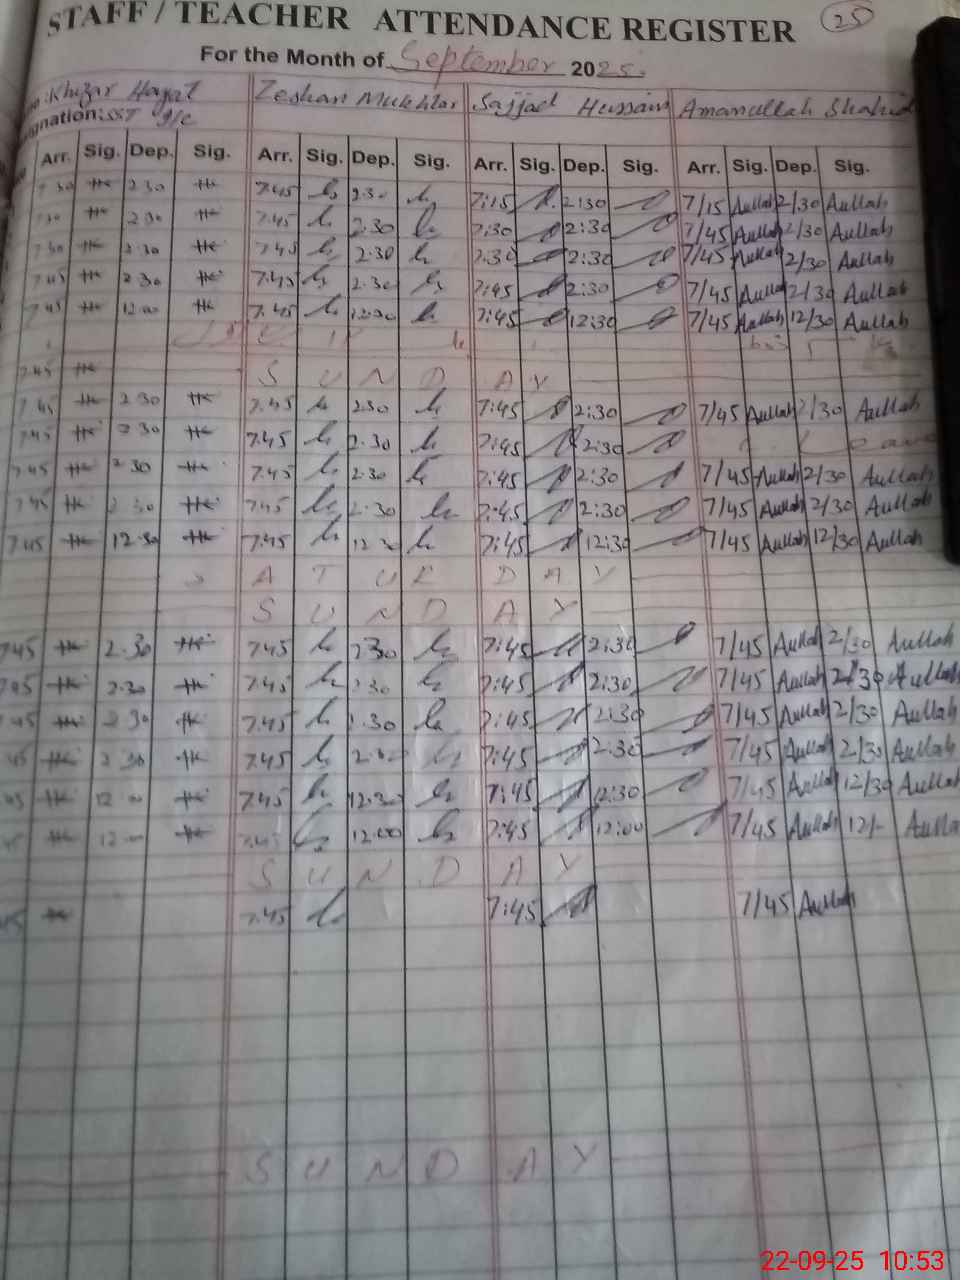 STAFF / TEACHER ATTENDANCE REGISTER 25
For the Month of September 2025.
Khizar Hayat Zeshan Mukhtar Sajjad Hussain Amanullah Shahid
gnation: SST
Arr. Sig. Dep. Sig. Arr. Sig. Dep. Sig. Arr. Sig. Dep. Sig. Arr. Sig. Dep. Sig.
7 30 2 30 7.45 2.30 7:15 2:30 7/15 Aullah 2/30 Aullah
7 30 2 30 7.45 2.30 7:30 2:30 7/45 Aullah 2/30 Aullah
7 30 2 30 7 45 2.30 7:30 2:30 7/45 Aullah 2/30 Aullah
7 45 2 30 7.45 2.30 7:45 2:30 7/45 Aullah 2/30 Aullah
7 45 12.00 7.45 12.30 7:45 12:30 7/45 Aullah 12/30 Aullah
7.45 S U N D A Y
7 45 2 30 7.45 2.30 7:45 2:30 7/45 Aullah 2/30 Aullah
7.45 2 30 7.45 2.30 7:45 2:30
7.45 2 30 7.45 2.30 7:45 2:30 7/45 Aullah 2/30 Aullah
7 45 2 30 7.45 2.30 7:45 2:30 7/45 Aullah 2/30 Aullah
7.45 12.30 7.45 12 30 7:45 12:30 7/45 Aullah 12/30 Aullah
S A T U R D A Y
S U N D A Y
745 2.30 7.45 2.30 7:45 2:30 7/45 Aullah 2/30 Aullah
745 2.30 7.45 2.30 7:45 2:30 7/45 Aullah 2/30 Aullah
45 2 30 7.45 2.30 7:45 2:30 7/45 Aullah 2/30 Aullah
45 2 30 7.45 2.30 7:45 2:30 7/45 Aullah 2/30 Aullah
45 12 00 7.45 12.30 7:45 12:30 7/45 Aullah 12/30 Aullah
45 12.00 7.45 12.00 7:45 12:00 7/45 Aullah 12/- Aulla
S U N D A Y
45 7.45 7:45 7/45 Aullah
S U N D A Y
22-09-25 10:53